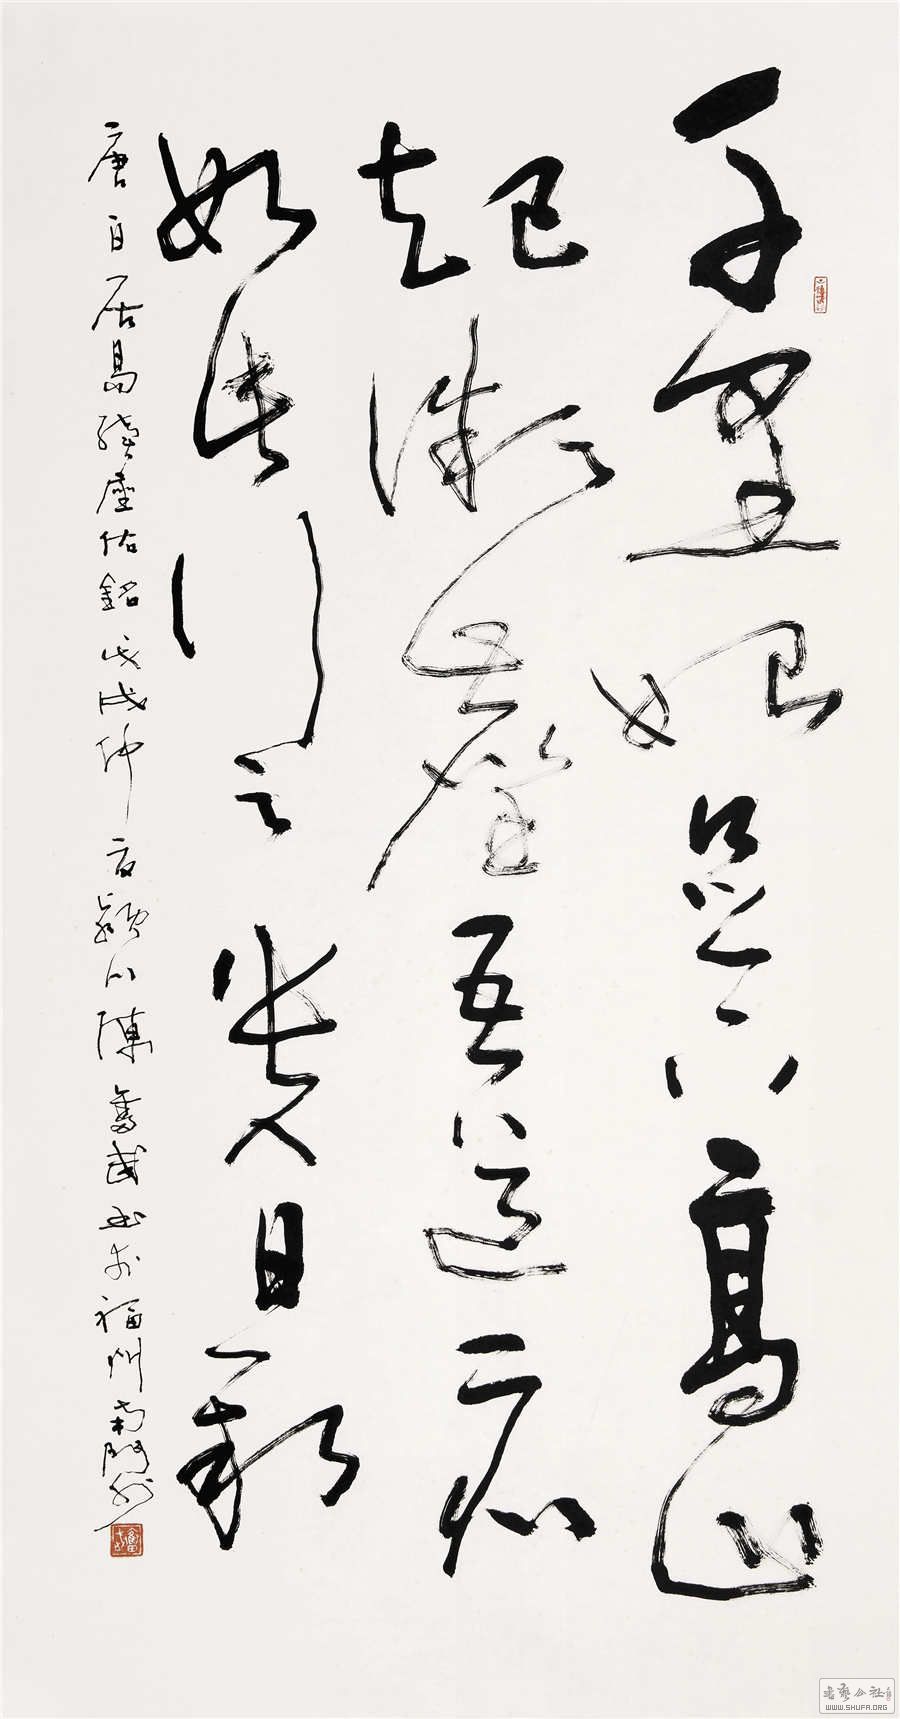 千里始足下高山
起微尘吾道亦
如此行之贵日新
唐白居易续座右铭戊戌仲夏颍川陈奋武书于福州南门外
書藝公社
WWW.SHUFA.ORG